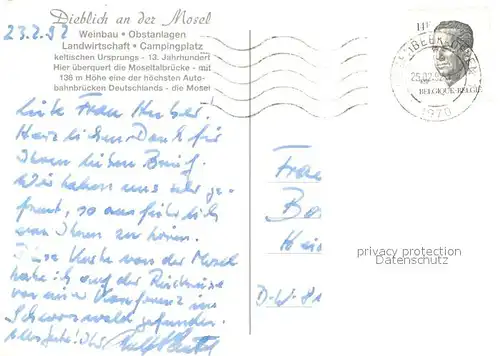 23.2.92
Dieblich an der Mosel
Weinbau • Obstanlagen
Landwirtschaft • Campingplatz
keltischen Ursprungs - 13. Jahrhundert
Hier überquert die Moseltalbrücke - mit
136 m Höhe eine der höchsten Auto-
bahnbrücken Deutschlands - die Mosel
Liebe Frau Huber!
Herzlichen Dank für
Ihren lieben Brief.
Wir haben uns sehr ge-
freut, so ausführlich
von Ihnen zu hören.
Diese Karte von der Mosel
habe ich auf der Rückreise
von einer Konferenz im
Schwarzwald gefunden.
Alles Gute! Ihr
14F
25.02.92
1970
BELGIQUE-BELGIE
Frau
D-W-81
privacy protection
Datenschutz